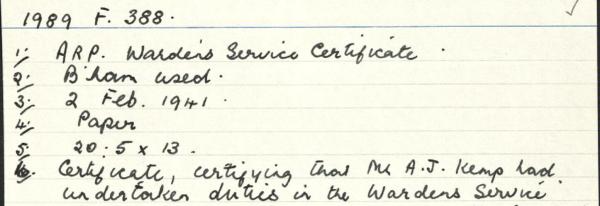 1989 F. 388.
1: ARP. Wardens Service Certificate.
2: B'ham used.
3: 2 Feb. 1941.
4: Paper
5: 20.5 x 13.
6. Certificate, certifying that Mr A.J. Kemp had
undertaken duties in the Wardens Service